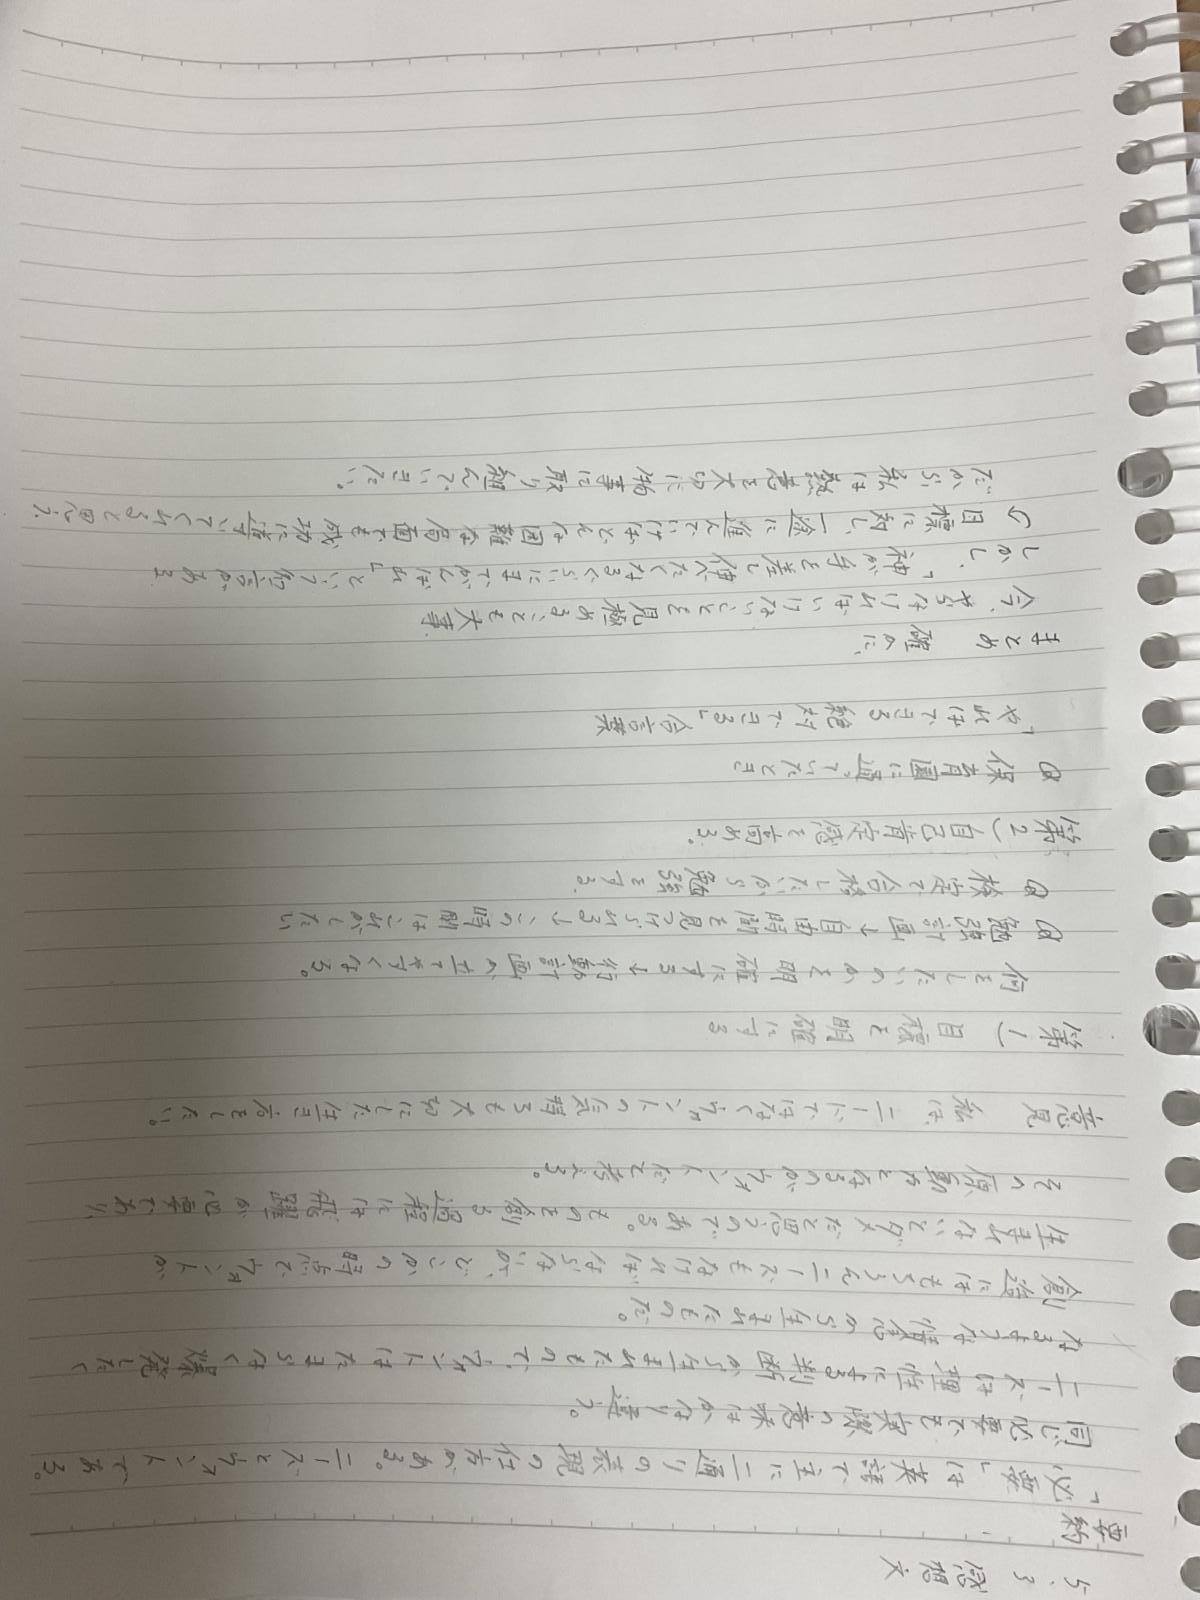 5.3 感想文
要約
「必要」は英語で主に二通りの表現の仕方がある。ニーズとウォントである。
同じ必要でも実際の意味はかなり違う。
ニーズは理性による判断から生まれたもので、ウォントはたまらなく爆発したく
なるような情念から生まれたものだ。
創造にはもちろんニーズもなければならないが、どこかの時点でウォントが
生まれないとダメだと思うのである。ものを創る過程には飛躍が必要であり、
その原動力となるのがウォントだと考える。
意見 私は、ニードではなくウォントの気持ちを大切にした生き方をしたい。
(第1) 目標を明確にする
何をしたいのかを明確にする→行動計画が立てやすくなる。
@ 勉強計画→自由時間を見つけられる→この時間はこれがしたい
@ 検定で合格したいから勉強をする.
(第2) 自己肯定感を高める。
@ 保育園に通っていたとき
「やればできる絶対できる」合言葉
まとめ 確かに、
今、やらなければいけないことを見極めることも大事.
しかし、「神が手を差し伸べたくなるくらいにまでがんばれ」という名言がある
↳目標に対し、一途に進んでいけばどんな困難な局面でも成功に導いてくれると思う?
だから私は熱意を大切に物事に取り組んでいきたい。